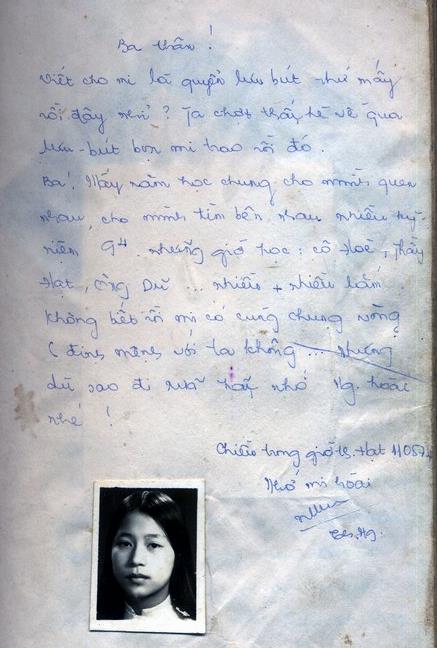 Ba thân !
Viết cho mi là quyển lưu bút thứ mấy
rồi đây nhỉ ? Ta chợt thấy hè về qua
lưu-bút bọn mi trao rồi đó.
Ba ! Mấy năm học chung cho mình quen
nhau, cho mình tìm bên nhau nhiều kỷ
niệm 9⁴ những giờ học : cô Hoè, thầy
Hạt, ông Dữ ... nhiều + nhiều lắm
không biết rồi mi có cùng chung vòng
( đồng mệnh với ta không ... nhưng
dù sao đi nữa hãy nhớ Ng. hoài
nhé !
Chiều trong giờ th. Hạt
Nhớ mi hoài